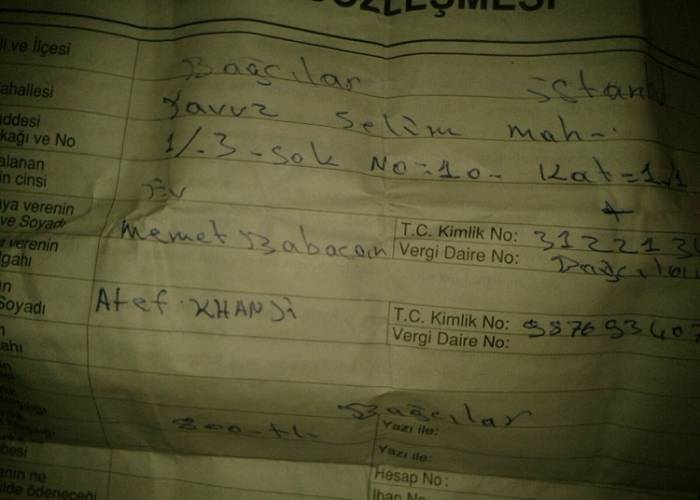 SÖZLEŞMESİ
li ve İlçesi Bağcılar İstanbul
ahallesi Yavuz Selim mah-.
ddesi
kağı ve No 1/-3-Sok No=10- Kat=1
alanan
in cinsi Ev
ya verenin
ve Soyadı Memet Babacan T.C. Kimlik No: 312213
verenin
gahı Vergi Daire No: Bağcılar
ın
Soyadı Atef KHANJi T.C. Kimlik No: 98769340
Vergi Daire No:
ahı
Bağcılar
800-tl- Yazı ile:
Yazı ile:
besi Hesap No:
anın ne
ilde ödeneceği İban No